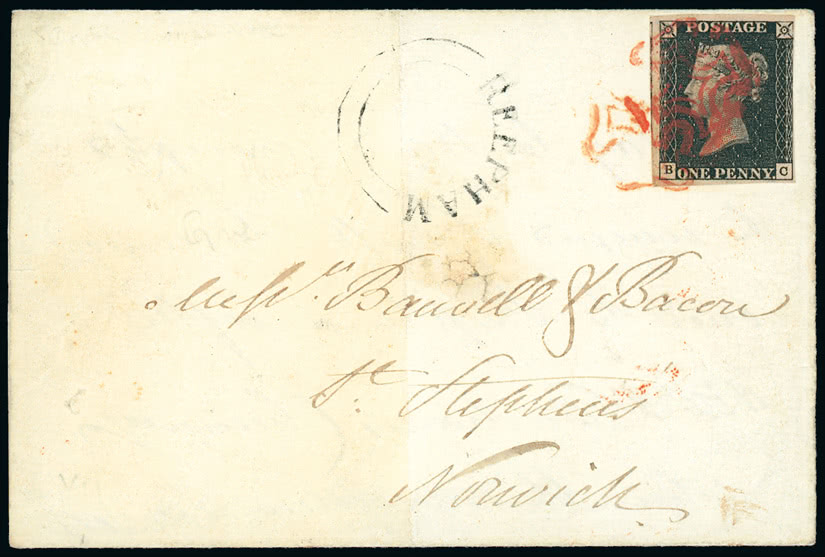 POSTAGE
B ONE PENNY. C
REEPHAM
Messrs Banwell & Bacon
St. Stephens
Norwich